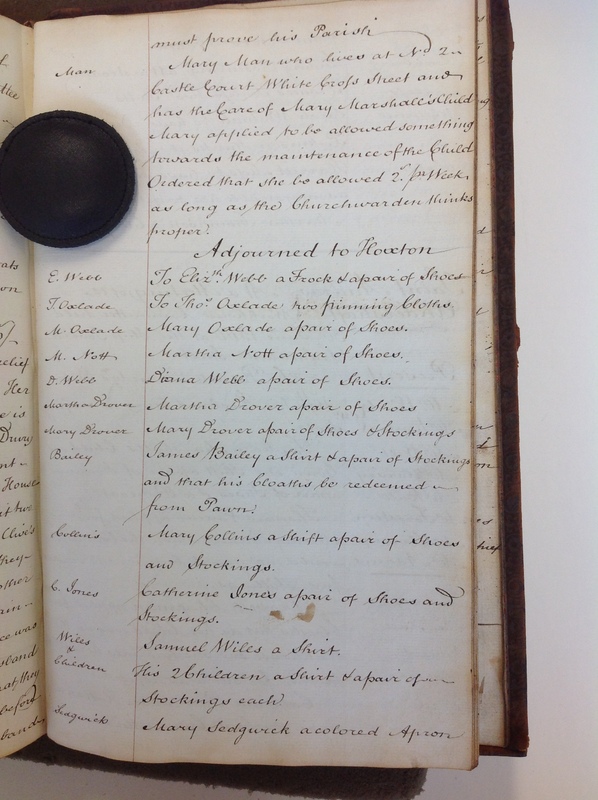 must prove his Parish
Man
Mary Man who lives at No 2
Castle Court White Cross Street and
has the Care of Mary Marshall's Child
Mary applied to be allowed something
towards the maintenance of the Child
Ordered that she be allowed 2s/ pr Week
as long as the Churchwarden thinks
proper.
Adjourned to Hoxton
E. Webb To Elizth. Webb a Frock & a pair of Shoes
T. Oxlade To Thos. Oxlade two pinning Cloths
M. Oxlade Mary Oxlade a pair of Shoes.
M. Nott Martha Nott a pair of Shoes.
D. Webb Diana Webb a pair of Shoes.
Martha Drover Martha Drover a pair of Shoes
Mary Drover Mary Drover a pair of Shoes & Stockings
Bailey James Bailey a Shirt & a pair of Stockings
and that his Cloaths be redeemed
from Pawn.
Collins Mary Collins a Shift a pair of Shoes
and Stockings.
C. Jones Catherine Jones a pair of Shoes and
Stockings.
Wills Samuel Wills a Shirt.
& Children His 2 Children a Shirt & a pair of
Stockings each
Sedgwick Mary Sedgwick a colored Apron